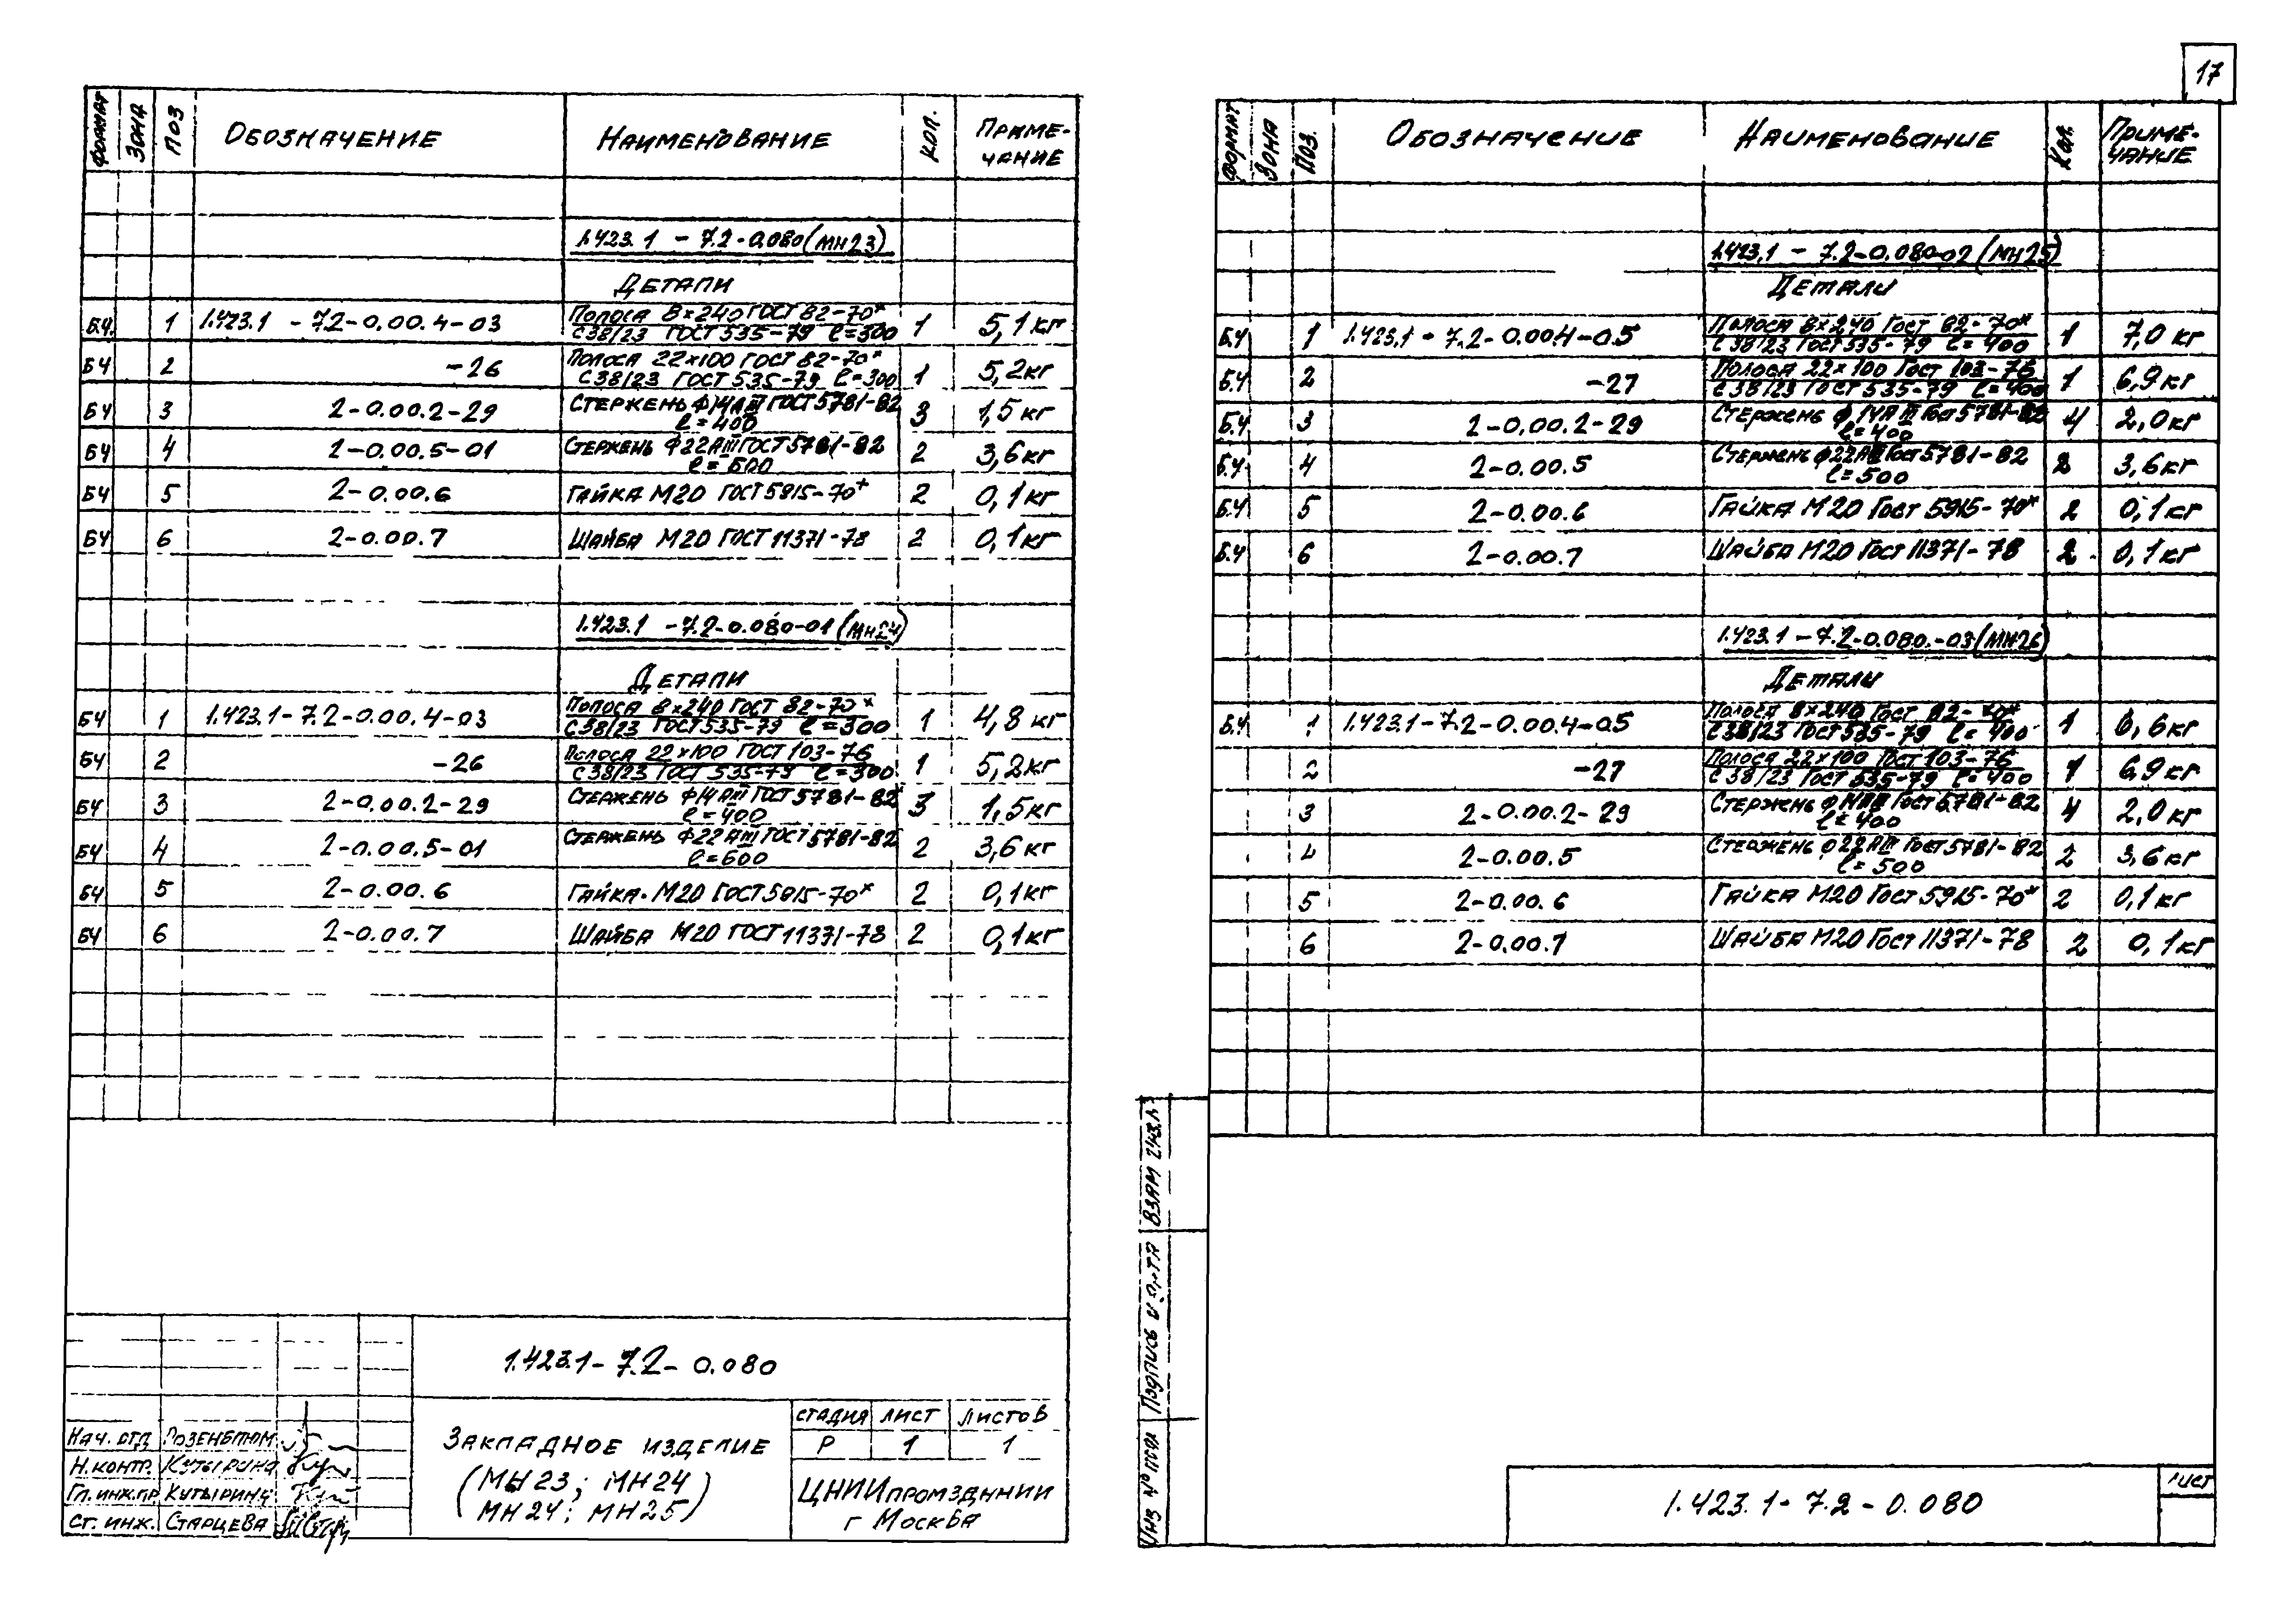 17
ФОРМАТ ЗОНА ПОЗ ОБОЗНАЧЕНИЕ НАИМЕНОВАНИЕ КОЛ. ПРИМЕ-
ЧАНИЕ
1.423.1 - 7.2-0.080 (МН23)
ДЕТАЛИ
Б.Ч. 1 1.423.1 - 7.2-0.00.4-03 ПОЛОСА 8×240 ГОСТ 82-70* 1 5,1кг
С38/23 ГОСТ 535-79 ℓ=300
БЧ 2 -26 ПОЛОСА 22×100 ГОСТ 82-70* 1 5,2кг
С38/23 ГОСТ 535-79 ℓ=300
БЧ 3 2-0.00.2-29 СТЕРЖЕНЬ Ф14АIII ГОСТ 5781-82 3 1,5кг
ℓ=400
БЧ 4 2-0.00.5-01 СТЕРЖЕНЬ Ф22АIII ГОСТ 5781-82 2 3,6кг
ℓ=600
БЧ 5 2-0.00.6 ГАЙКА М20 ГОСТ 5915-70* 2 0,1кг
БЧ 6 2-0.00.7 ШАЙБА М20 ГОСТ 11371-78 2 0,1кг
1.423.1 -7.2-0.080-01 (МН24)
ДЕТАЛИ
БЧ 1 1.423.1-7.2-0.00.4-03 ПОЛОСА 8×240 ГОСТ 82-70* 1 4,8кг
С38/23 ГОСТ 535-79 ℓ=300
БЧ 2 -26 ПОЛОСА 22×100 ГОСТ 103-76 1 5,2кг
С38/23 ГОСТ 535-79 ℓ=300
БЧ 3 2-0.00.2-29 СТЕРЖЕНЬ Ф14АIII ГОСТ 5781-82 3 1,5кг
ℓ=400
БЧ 4 2-0.00.5-01 СТЕРЖЕНЬ Ф22АIII ГОСТ 5781-82 2 3,6кг
ℓ=600
БЧ 5 2-0.00.6 ГАЙКА М20 ГОСТ 5915-70* 2 0,1кг
БЧ 6 2-0.00.7 ШАЙБА М20 ГОСТ 11371-78 2 0,1кг
1.423.1-7.2-0.080
НАЧ. ОТД РОЗЕНБЛЮМ
Н.КОНТР. КУТЫРИНА
ГЛ.ИНЖ.ПР КУТЫРИНА
СТ. ИНЖ. СТАРЦЕВА
ЗАКЛАДНОЕ ИЗДЕЛИЕ
(МН23; МН24
МН24; МН25)
СТАДИЯ ЛИСТ ЛИСТОВ
Р 1 1
ЦНИИПРОМЗДАНИЙ
г МОСКВА
ФОРМАТ ЗОНА ПОЗ. ОБОЗНАЧЕНИЕ НАИМЕНОВАНИЕ КОЛ. ПРИМЕ-
ЧАНИЕ
1.423.1 - 7.2-0.080-02 (МН25)
ДЕТАЛИ
Б.Ч 1 1.423.1-7.2-0.00.4-05 ПОЛОСА 8×240 ГОСТ 82-70* 1 7,0кг
С38/23 ГОСТ 535-79 ℓ=400
Б.Ч 2 -27 ПОЛОСА 22×100 ГОСТ 103-76 1 6,9кг
С38/23 ГОСТ 535-79 ℓ=400
Б.Ч 3 2-0.00.2-29 СТЕРЖЕНЬ Ф14АIII ГОСТ 5781-82 4 2,0кг
ℓ=400
Б.Ч. 4 2-0.00.5 СТЕРЖЕНЬ Ф22АIII ГОСТ 5781-82 2 3,6кг
ℓ=500
Б.Ч 5 2-0.00.6 ГАЙКА М20 ГОСТ 5915-70* 2 0,1кг
Б.Ч 6 2-0.00.7 ШАЙБА М20 ГОСТ 11371-78 2 0,1кг
1.423.1-7.2-0.080.-03 (МН26)
ДЕТАЛИ
Б.Ч 1 1.423.1-7.2-0.00.4-05 ПОЛОСА 8×240 ГОСТ 82-70* 1 6,6кг
С38/23 ГОСТ 535-79 ℓ=400
2 -27 ПОЛОСА 22×100 ГОСТ 103-76 1 6,9кг
С38/23 ГОСТ 535-79 ℓ=400
3 2-0.00.2-29 СТЕРЖЕНЬ Ф14АIII ГОСТ 5781-82 4 2,0кг
ℓ=400
4 2-0.00.5 СТЕРЖЕНЬ Ф22АIII ГОСТ 5781-82 2 3,6кг
ℓ=500
5 2-0.00.6 ГАЙКА М20 ГОСТ 5915-70* 2 0,1кг
6 2-0.00.7 ШАЙБА М20 ГОСТ 11371-78 2 0,1кг
ИНВ № ПОДЛ ПОДПИСЬ И ДАТА ВЗАМ ИНВ.№
1.423.1-7.2-0.080
ЛИСТ